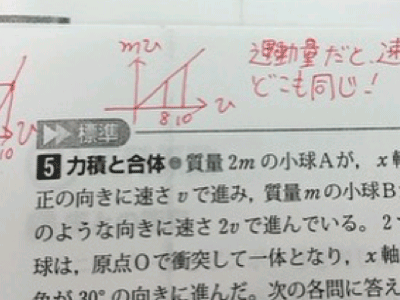 mv
運動量だと、速
どこも同じ!
8 10
v
v
10
標準
5 力積と合体 ● 質量2mの小球Aが, x軸
正の向きに速さvで進み, 質量mの小球B
のような向きに速さ2vで進んでいる。2つ
球は, 原点Oで衝突して一体となり, x軸
角が30°の向きに進んだ。次の各問に答え